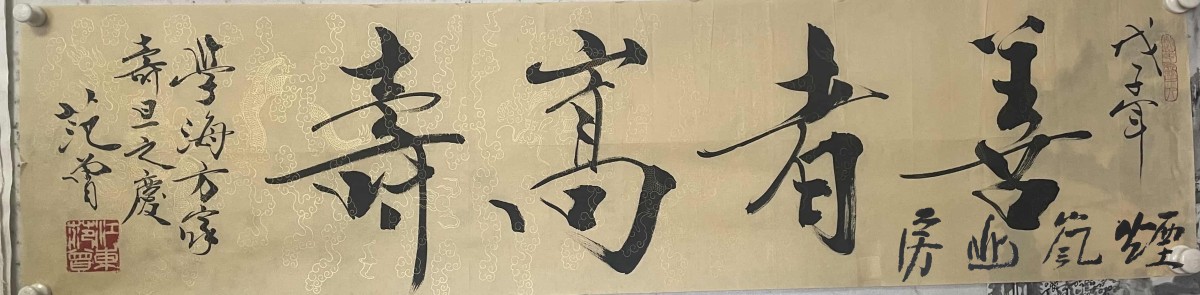 戊子年
善者高壽
學海方家
壽旦之慶
范曾
江東范曾
煙
房